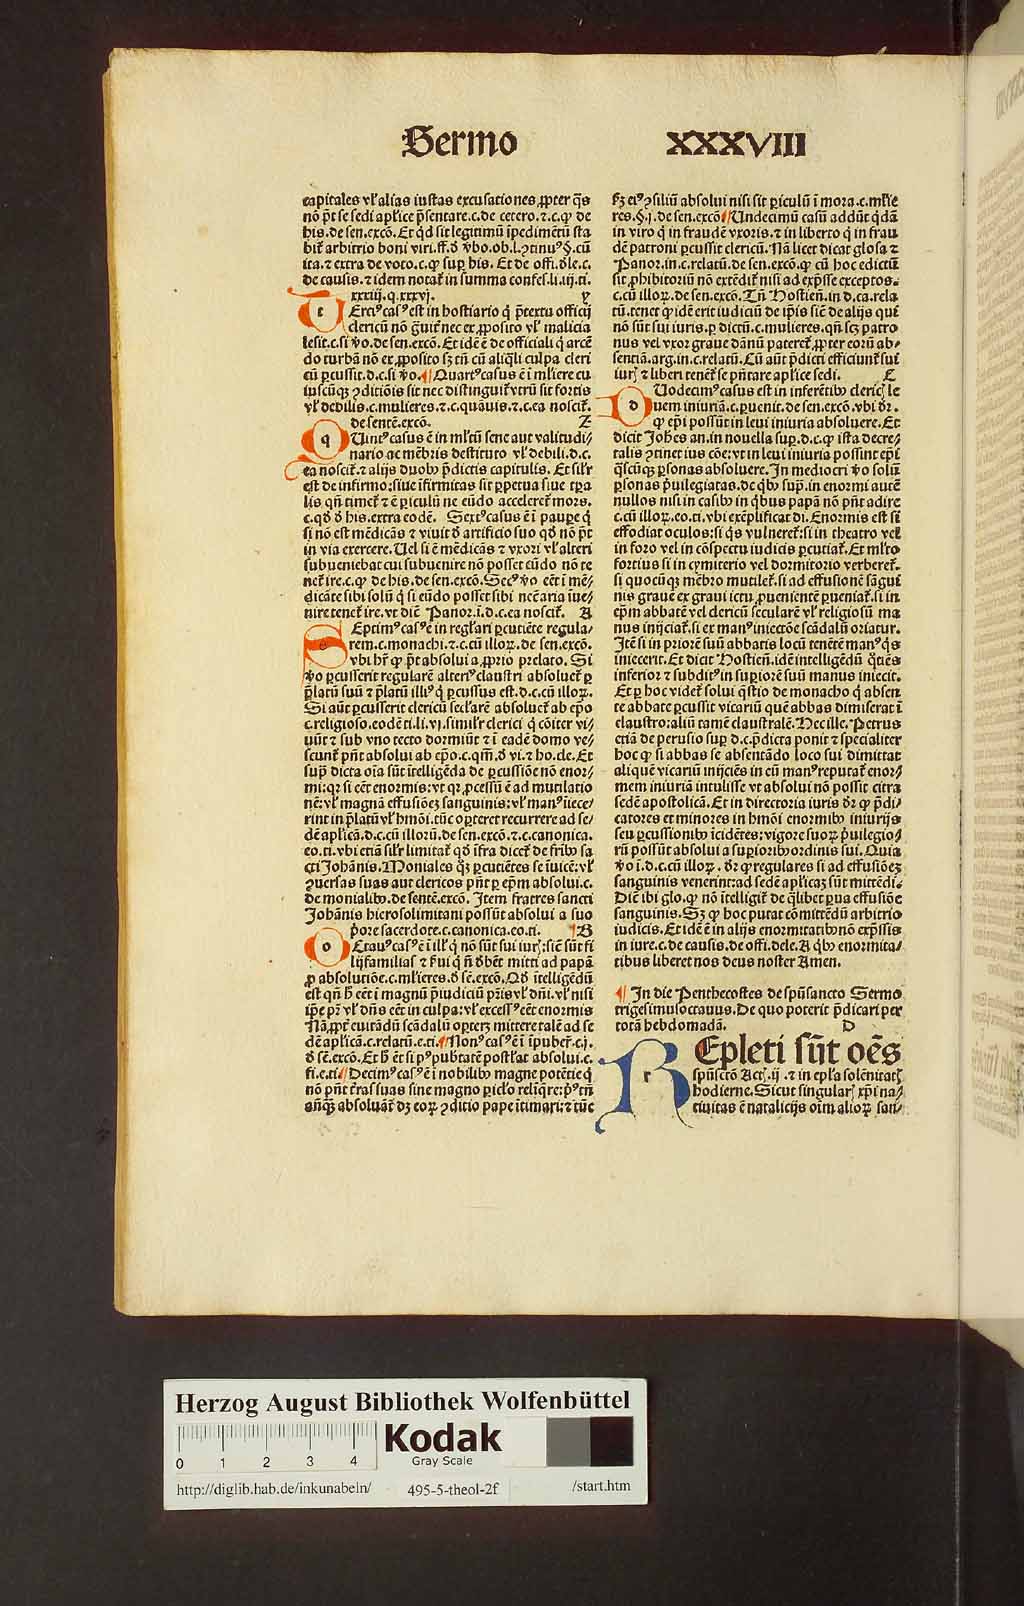 Sermo XXXVIII
capitales vl' alias iustas excusationes, ꝓpter q̄s
nō pn̄t se sedi apl'ice p̄sentare.c.de cetero.⁊.c.ꝙ de
his.de sen.excō. Et qd sit legitimū īpedimētū sta
bit̄ arbitrio boni viri.ff.ð v̄bo.ob.l.ꝯtinuꝰ §.cū
ita.⁊ extra de voto.c.ꝙ sup̱ his. Et de offi.ðle.c.
de causis.⁊ idem notat̄ in summa confes.li.iij.ti.
xxxiij.q.xxxvj. y
t Erciꝰ casꝰ est in hostiario q̄ p̄textu officij
clericū nō g̈uit̄ nec ex ꝓposito vl' malicia
lesit.c.si v̊o.de sen.excō. Et idē ē de officiali q̄ arcē
do turbā nō ex ꝓposito sꝫ tn̄ cū aliq̄li culpa cleri
cū ꝑcussit.d.c.si v̊o.¶ Quartꝰ casus ē ī ml'iere cu
iuscūqꝫ ꝯditiōis sit nec distinguit̄ vtrū sit fortis
vl' debilis.c.mulieres.⁊.c.quāuis.⁊.c.ea noscit̄.
de sentē.excō. Z
q Uintꝰ casus ē in ml'tū sene aut valitudi/
nario ac mēbris destituto vl' debili.d.c.
ea noscit̄.⁊ alijs duobꝰ p̄dictis capitulis. Et sil'r
est de infirmo:siue īfirmitas sit ꝑpetua siue tꝑa
lis qn̄ timet̄ ⁊ ē ꝑiculū ne eūdo acceleret̄ mors.
c.qð ð his.extra eodē. Sextꝰ casus ē ī paupe q̄
si nō est mēdicās ⁊ viuit ð artificio suo qð nō pn̄t
in via exercere. Uel si ē mēdicās ⁊ vxori vl' alteri
subueniebat cui subuenire nō posset eūdo nō te
net̄ ire.c.ꝙ de his.de sen.excō. Secꝰ v̊o eēt ī mē/
dicāte sibi solū q̄ si eūdo posset sibi ncēaria īue/
nire tenet̄ ire.vt dic̄ Panor.ī.d.c.ea noscit̄. A
S Eptimꝰ casꝰ ē in regl'ari ꝑcutiēte regula/
rem.c.monachi.⁊.c.cū illoꝝ.de sen.excō.
vbi hr̄ ꝙ pn̄t absolui a ꝓprio prelato. Si
v̊o ꝑcusserit regularē alteriꝰ claustri absoluet̄ ꝑ
p̄latū suū ⁊ p̄latū illiꝰ q̄ ꝑcussus est.d.c.cū illoꝝ.
Si aūt ꝑcusserit clericū secl'arē absoluet̄ ab ep̄o
c.religioso.eodē ti.li.vj.simil'r clerici q̄ cōiter vi/
uūt ⁊ sub vno tecto dormiūt ⁊ ī eadē domo ve/
scunt̄ pn̄t absolui ab ep̄o.c.qm̄.ð vi.⁊ ho.cle. Et
sup̱ dicta oīa sūt ītelligēda de ꝑcussiōe nō enor/
mi:qꝛ si eēt enormis:vt qꝛ ꝓcessū ē ad mutilatio
nē:vl' magnā effusiōeꝫ sanguinis:vl' manꝰ iniece/
rint in p̄latū vl' hmōi.tūc oꝑteret recurrere ad se/
dē apl'icā.d.c.cū illorū.de sen.excō.⁊.c.canonica.
eo.ti.vbi etiā sil'r limitat̄ qð īfra dicet̄ de frībꝰ sa
cti Johānis. Moniales qꝫ ꝑcutiētes se īuicē:vl'
ꝯuersas suas aut clericos pn̄t ꝑ ep̄m absolui.c.
de monialibꝰ.de sentē.excō. Item fratres sancti
Johānis hierosolimitani possūt absolui a suo
p̊ore sacerdote.c.canonica.eo.ti. ¶B
o Ctauꝰ casꝰ ē ī ill' q̄ nō sūt sui iurꝭ:sic̄ sūt fi
lijfamilias ⁊ s̄ui q̄ nō ðbēt mitti ad papā
ꝓ absolutiōe.c.ml'ieres.ð sē.excō. Qð ītelligēdū
est qn̄ h̄ eēt ī magnū p̄iudiciū pr̄is vl' dn̄i.vl' nisi
ip̄e pr̄ vl' dn̄s eēt in culpa:vl' excessꝰ eēt enormis
Nā ꝓpt̄ euitādū scādalū oꝑteꝫ mittere talē ad se
dē apl'icā.c.relatū.e.ti.¶ Nonꝰ casꝰ ē ī īpuber.c.j.
ð sē.excō. Et h̄ ēt si pꝰ pub̄tatē postl'at absolui.c.
fi.e.ti.¶ Decimꝰ casꝰ ē ī nobilibꝰ magne potētie q̄
nō pn̄t t̄ras suas sine magno ꝑicl'o relīq̄re:p̊ꝰ tn̄
anq̄ꝫ absoluāt̄ dꝫ eoꝝ ꝯditio pape ītimari:⁊ tūc
sꝫ eiꝰ ꝯsiliū absolui nisi sit ꝑiculū ī mora.c.ml'ie
res.§.j.de sen.excō.¶ Undecimū casū addūt q̄dā
in viro q̄ in fraudē vxoris.⁊ in liberto q̄ in frau
dē patroni ꝑcussit clericū. Nā licet dicat glosa ⁊
Panor.in.c.relatū.de sen.excō.ꝙ cū hoc edictū
sit ꝓhibitoriū nō extēdit̄ nisi ad exp̄sse exceptos.
c.cū illoꝝ.de sen.excō. Tn̄ Hostien̄.in.d.ca.rela
tū.tenet ꝙ idē erit iudiciū de ip̄is sic̄ de alijs qui
nō sūt sui iuris.ꝑ dictū.c.mulieres.qn̄ sꝫ patro
nus vel vxor graue dānū pateret̄ ꝓpter eorū ab/
sentiā.arg.in.c.relatū. Cū aūt p̄dicti efficiunt̄ sui
iurꝭ ⁊ liberi tenēt̄ se pn̄tare apl'ice sedi. C
d Uodecimꝰ casus est in inferētibꝰ clericꝭ le
uem iniuriā.c.ꝑuenit.de sen.excō.vbi dr̄.
ꝙ ep̄i possūt in leui iniuria absoluere. Et
dicit Joh̄es an.in nouella sup̱.d.c.ꝙ ista decre/
talis ꝯtinet ius cōe:vt in leui iniuria possint ep̄i
q̄scūqꝫ ꝑsonas absoluere. In mediocri v̊o solū
ꝑsonas p̄uilegiatas.de qbꝰ sup̱.in enormi autē
nullos nisi in casibꝰ in qbus papā nō pn̄t adire
c.cū illoꝝ.eo.ti.vbi exēplificat di. Enormis est si
effodiat oculos:si qs vulneret̄:si in theatro vel
in foro vel in cōspectu iudicis ꝑcutiat̄. Et ml'to
fortius si in cymiterio vel dormitorio verberet̄.
si quocūqꝫ mēbro mutilet̄.si ad effusionē sāgui
nis graue ex graui ictu ꝓuenientē ꝑueniat̄.si in
ep̄m abbatē vel clericū secularē vl' religiosū ma
nus inijciat̄.si ex manꝰ iniectōe scādalū oriatur.
Itē si in priorē suū abbatis locū tenētē manꝰ qs
iniecerit. Et dicit Hostien̄.idē intelligēdū q̊tiēs
inferior ⁊ subditꝰ in supiorē suū manus iniecit.
Et ꝑ hoc videt̄ solui q̄stio de monacho q̄ absen
te abbate ꝑcussit vicariū quē abbas dimiserat ī
claustro:aliū tamē claustralē. Hec ille. Petrus
etiā de perusio sup̱ d.c.p̄dicta ponit ⁊ specialiter
hoc ꝙ si abbas se absentādo loco sui dimittat
aliquē vicariū inijciēs in eū manꝰ reputat̄ enor/
mem iniuriā intulisse vt absolui nō possit citra
sedē apostolicā. Et in directoria iuris dr̄ ꝙ p̄di/
catores et minores in hmōi enormibꝰ iniurijs
seu ꝑcussionibꝰ īcidētes:vigore suoꝝ p̄uilegio/
rū possūt absolui a supioribꝰ ordinis sui. Quia
v̊o ī.d.c.cū illoꝝ.dr̄ ꝙ regulares si ad effusiōeꝫ
sanguinis venerint:ad sedē apl'icaꝫ sūt mittēdi.
Dic̄ ibi glo.ꝙ nō ītelligit̄ de q̄libet ꝑua effusiōe
sanguinis. Sꝫ ꝙ hoc putat cōmittēdū arbitrio
iudicis. Et idē ē in alijs enormitatibꝰ nō exp̄ssis
in iure.c.de causis.de offi.dele. A qbꝰ enormita/
tibus liberet nos deus noster Amen.
¶ In die Penthecostes de sp̄usancto Sermo
trigesimusoctauus. De quo poterit p̄dicari per
totā hebdomadā. D
R Epleti sūt oēs
sp̄usctō Actꝭ.ij.⁊ in ep̄l'a solēnitatꝭ
hodierne. Sicut singularꝭ xp̄i na/
tiuitas ē natalicijs oīm alioꝝ san/
Herzog August Bibliothek Wolfenbüttel
0 1 2 3 4
Kodak
Gray Scale
http://diglib.hab.de/inkunabeln/ 495-5-theol-2f /start.htm